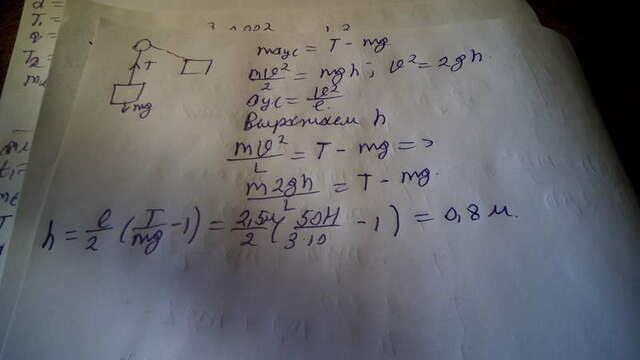 d =
T₁ =
T₂ =
T
mg
maус = T - mg
mv²/2 = mgh; v² = 2gh.
aус = v²/l
Выражаем h
mv²/L = T - mg =>
m2gh/L = T - mg.
h = l/2 (T/mg - 1) = 2,5м/2 (50Н/3·10 - 1) = 0,8 м.